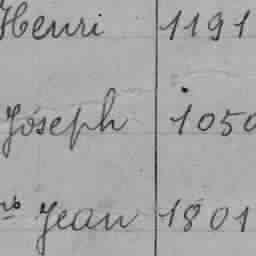 Henri 1191
Joseph 1050
Jean 1801